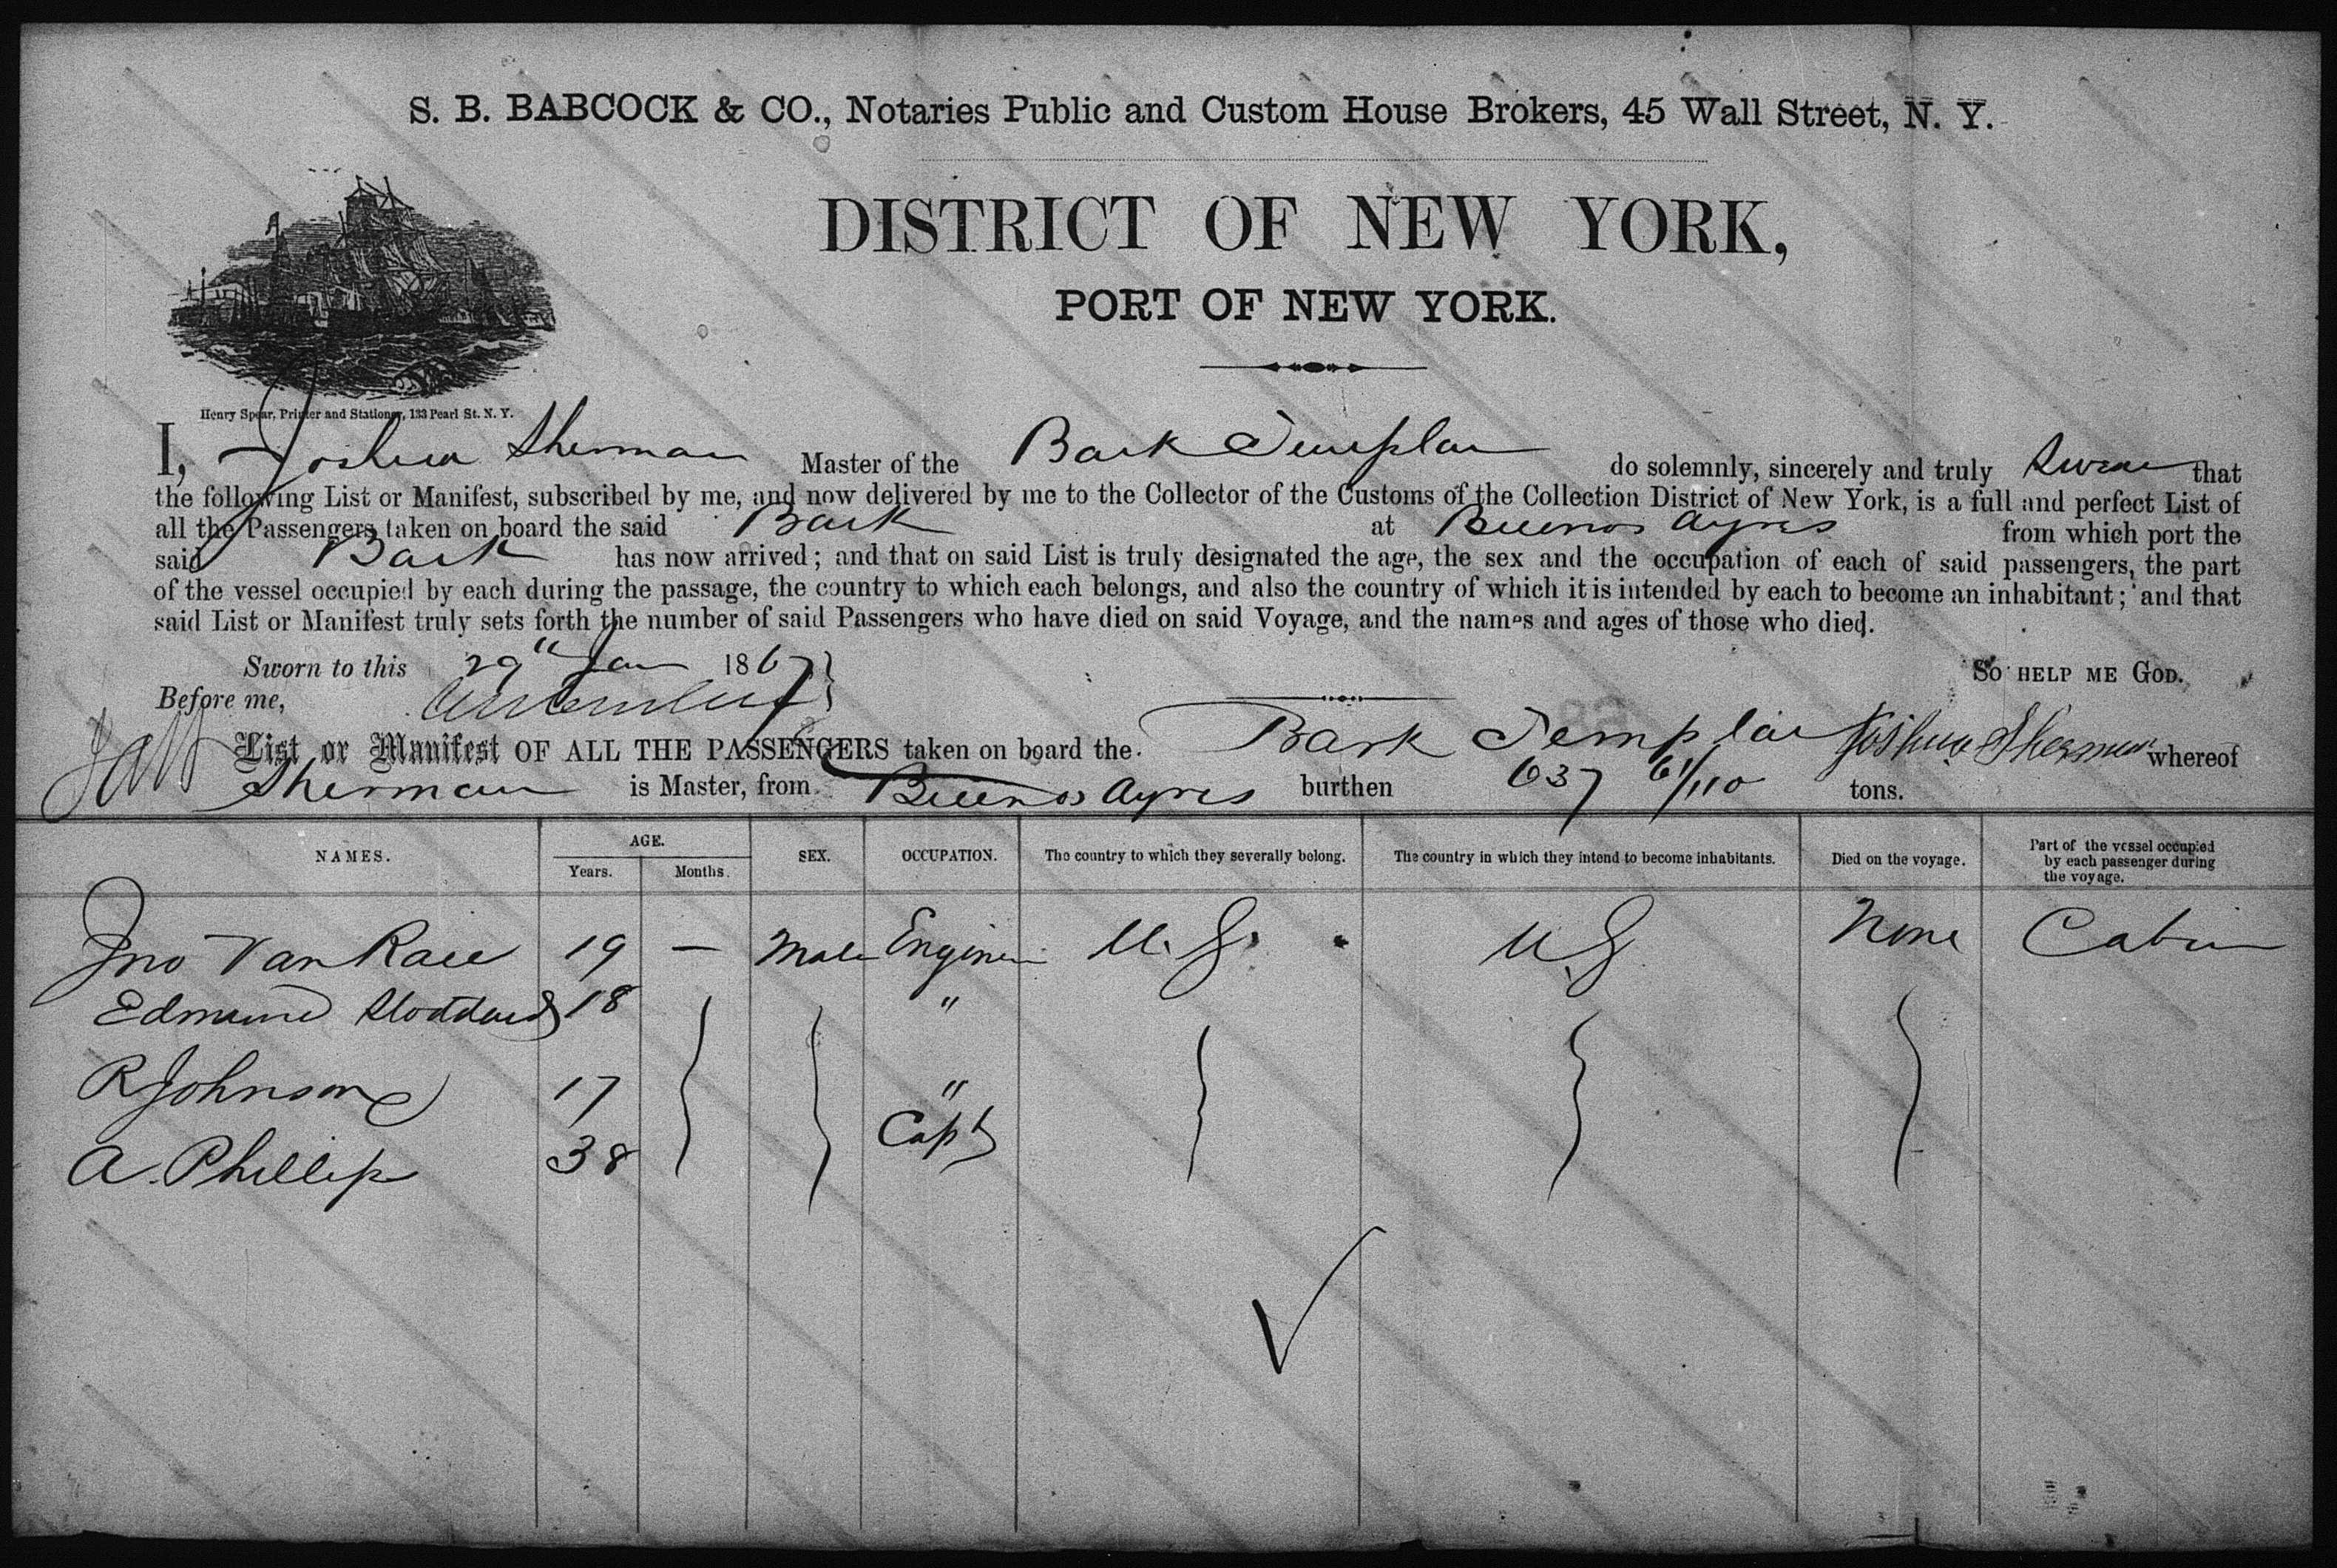 S. B. BABCOCK & CO., Notaries Public and Custom House Brokers, 45 Wall Street, N. Y.
DISTRICT OF NEW YORK,
PORT OF NEW YORK.
Henry Spear, Printer and Stationer, 133 Pearl St. N. Y.
I, Joshua Sherman Master of the Bark Templar do solemnly, sincerely and truly swear that
the following List or Manifest, subscribed by me, and now delivered by me to the Collector of the Customs of the Collection District of New York, is a full and perfect List of
all the Passengers taken on board the said Bark at Buenos Ayres from which port the
said Bark has now arrived; and that on said List is truly designated the age, the sex and the occupation of each of said passengers, the part
of the vessel occupied by each during the passage, the country to which each belongs, and also the country of which it is intended by each to become an inhabitant; and that
said List or Manifest truly sets forth the number of said Passengers who have died on said Voyage, and the names and ages of those who died.
Sworn to this 29" Jan 1867 } SO HELP ME GOD.
Before me,
List or Manifest OF ALL THE PASSENGERS taken on board the Bark Templar Joshua Sherman whereof
Sherman is Master, from Buenos Ayres burthen 637 61/110 tons.
NAMES. AGE. Years. Months. SEX. OCCUPATION. The country to which they severally belong. The country in which they intend to become inhabitants. Died on the voyage. Part of the vessel occupied by each passenger during the voyage.
Jno Van 19 — Male Engineer U.S. U.S. None Cabin
Edmund Stoddard 18 "
R Johnson 17 "
A. Phillips 38 Capt